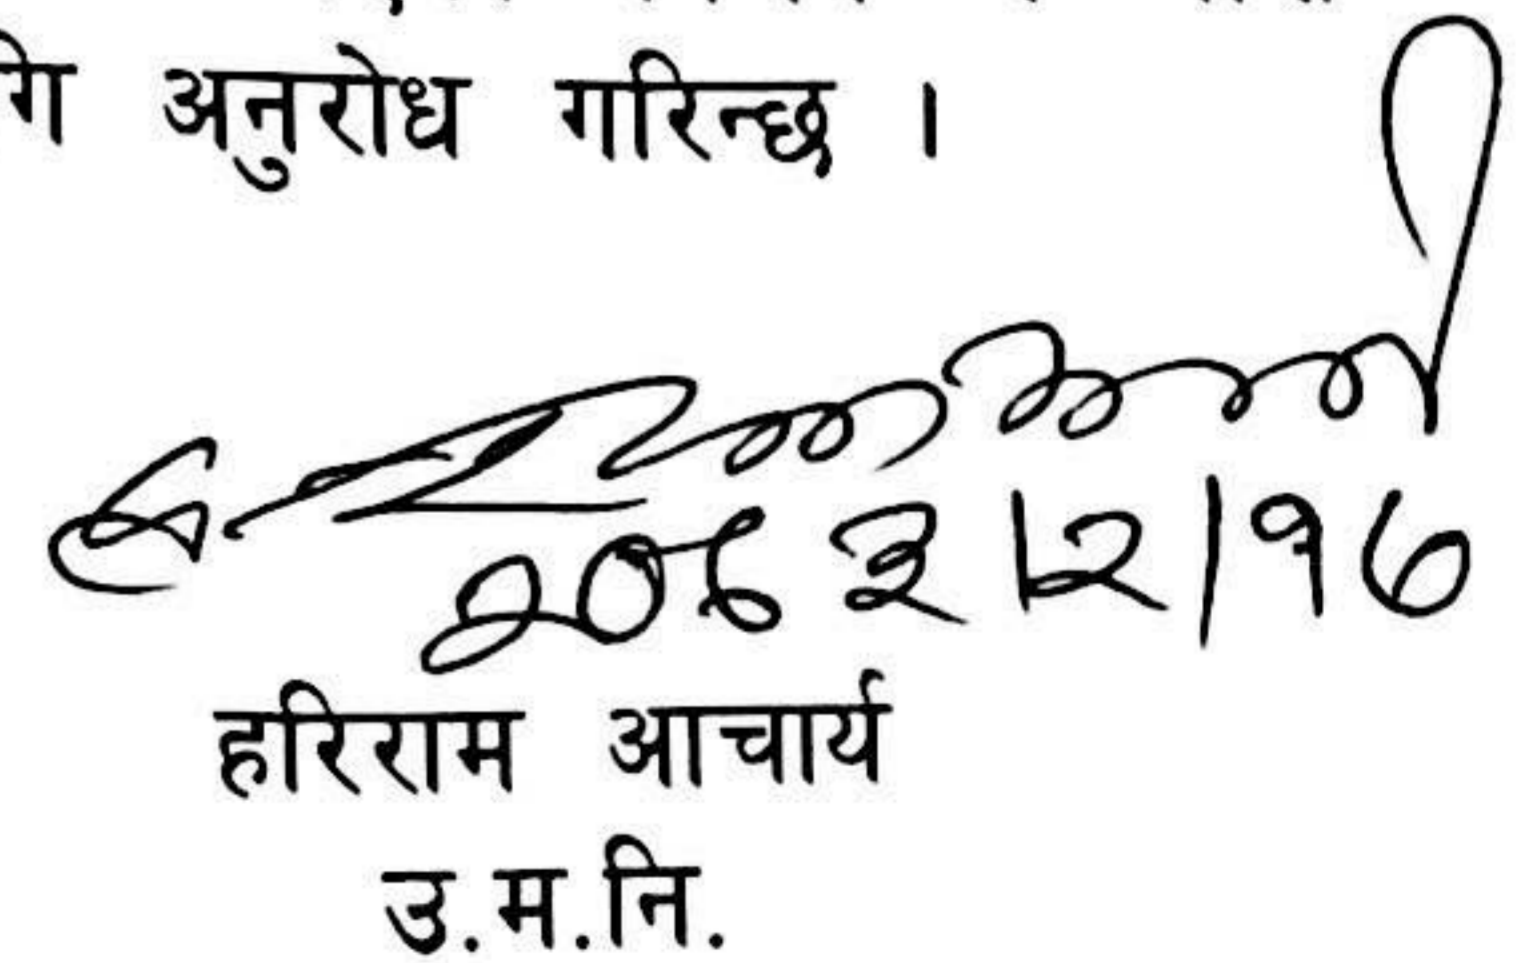 गि अनुरोध गरिन्छ ।
२०६३।२।१७
हरिराम आचार्य
उ.म.नि.